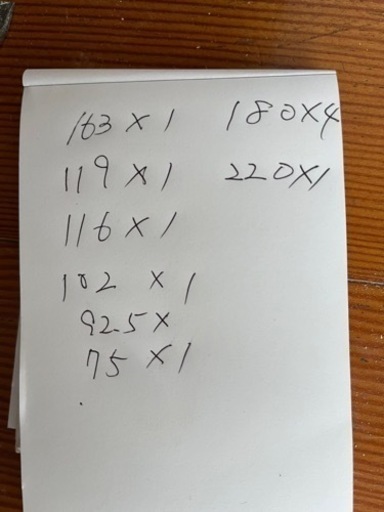 163 x 1 180x4
119 x 1 220x1
116 x 1
102 x 1
92.5 x
75 x 1